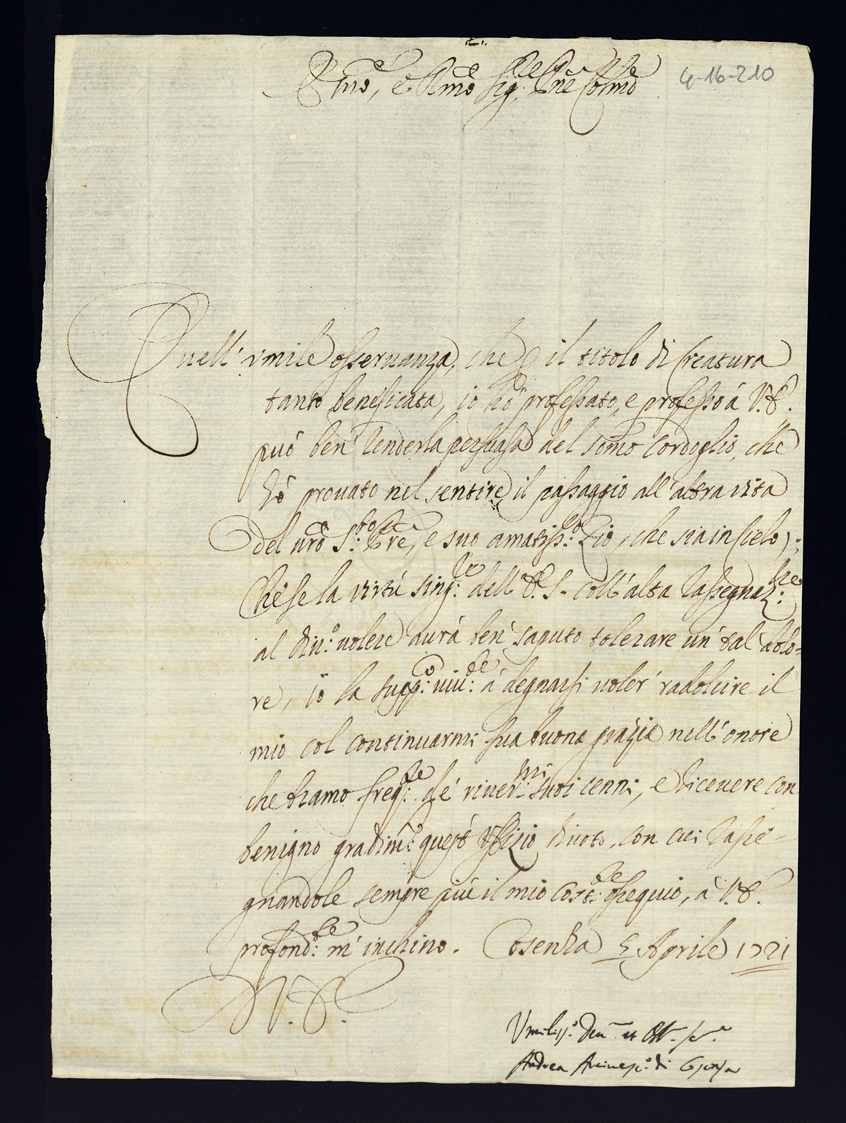 4-16-210
Em̃o, e Rm̃o Sig.re P̃ne Colm̃o
Quell' vmile osseruanza, che p il titolo di Creatura
tanto beneficata, io hò professato, e professo à V. E.
può ben' renderla persuasa del som̃o cordoglio, che
hò prouato nel sentire il passaggio all'altra vita
del ñro S.to P̃re, e suo amatiss.o Zio, che sia in Cielo);
Chè se la virtù sing.re dell' E. S. coll' alta rassegnaz.ne
al diu.o uolere aurà ben' saputo tolerare un' tal' dolo-
re, io la supp.co viu.te à degnarsi uoler' radolcire il
mio col continuarmi sua buona grazia nell' onore
che bramo freq.te de' riuer.mi suoi cenni, e riceuere con
benigno gradim.to questo Vffizio diuoto, con cui rasse-
gnandole sempre più il mio cost.te ossequio, à V. E.
profond.te m' inchino. Cosenza 5 Aprile 1721
D. V. E.
Vmiliss.o Deu.mo et Obl. se.re
Andrea Arciuesc.o di Cosenza